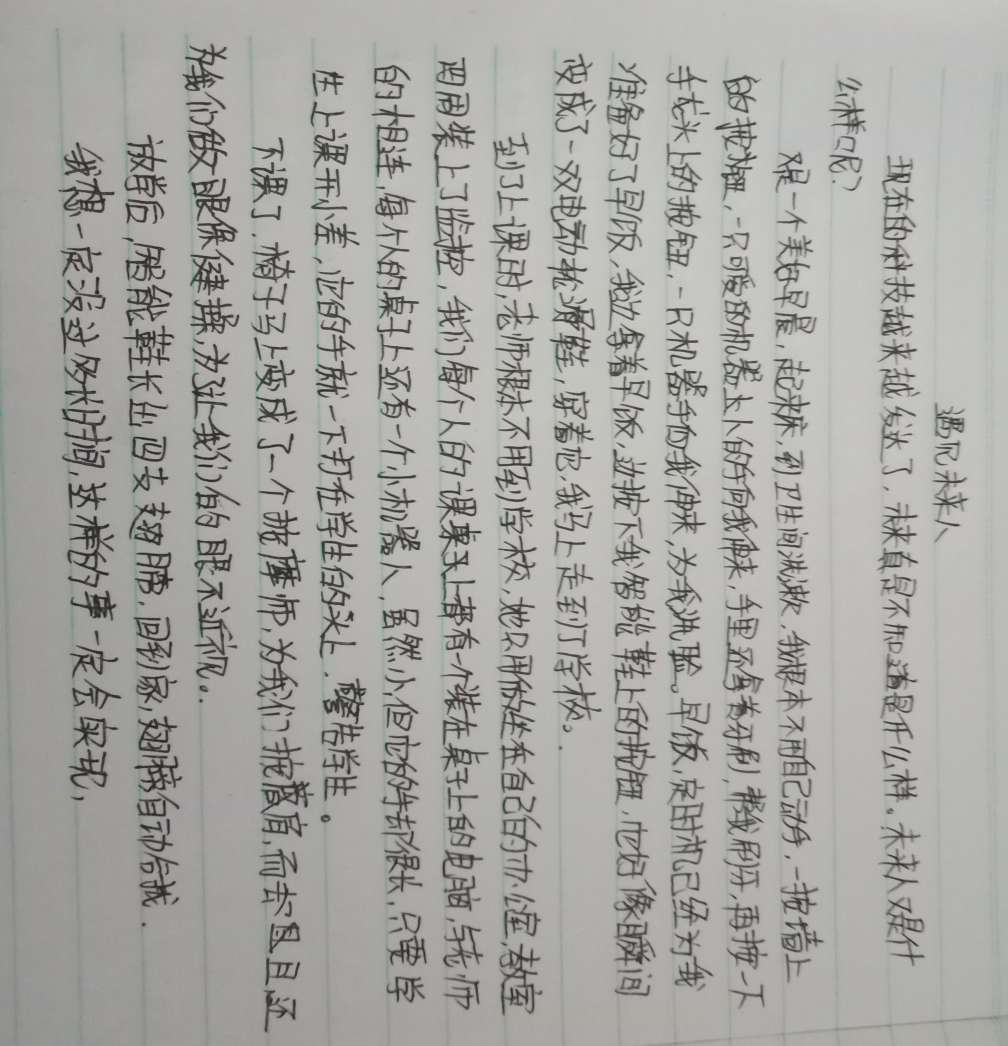 遇见未来人
现在的科技越来越发达了，未来真是不知道是什么样。未来人又是什
么样呢？
又是一个美好早晨，起来床，到卫生间洗漱，我根本不用自己动手，一按墙上
的按钮，一只可爱的机器人的手向我伸来，手里还拿着牙刷，帮我刷牙，再按一下
手龙头上的按钮，一只机器手向我伸来，为我洗脸。早饭，定时机已经为我
准备好了早饭，我边拿着早饭，边按下我智能鞋上的按钮，它好像瞬间
变成了一双电动轮滑鞋，穿着它，我马上走到了学校。
到了上课时，老师根本不用到学校，她只用做坐在自己的办公室，教室
四周装上了监控，我们每个人的课桌上都有一个装在桌子上的电脑，与老师
的相连，每个人的桌子上还有一个小机器人，虽然小，但它的手却很长，只要学
生上课开小差，它的手就一下打在学生的头上，警告学生。
下课了，椅子马上变成了一个按摩师，为我们按摩肩，而且还
为我们做眼保健操，为让我们的眼不近视。
放学后，智能鞋长出四支翅膀，回到家，翅膀自动合拢．
我想一定没过多长时间，这样的事一定会实现，